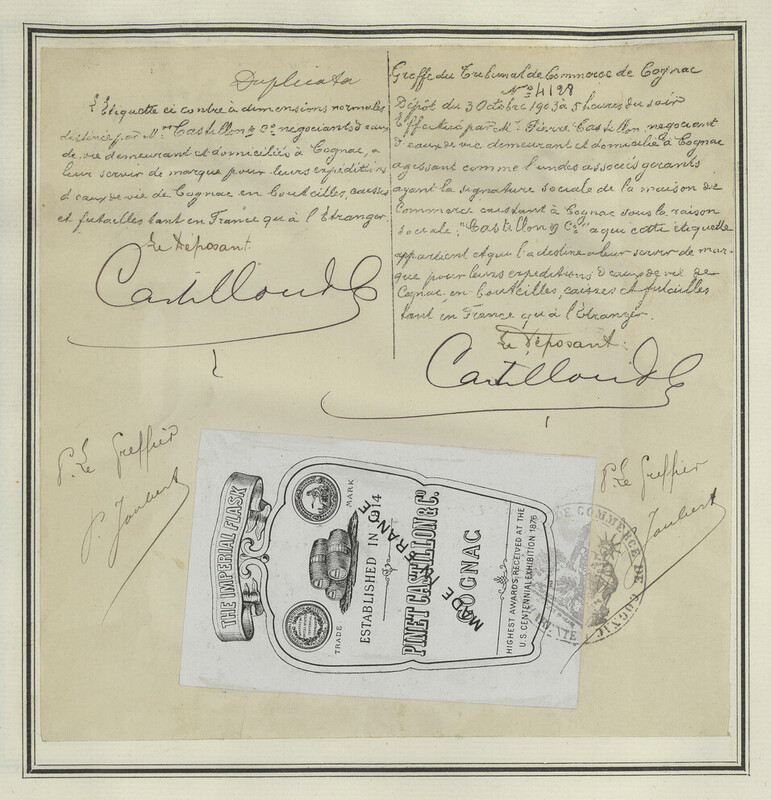 Duplicata
L'Etiquette ci contre à dimensions normales
destinée par Mrs Castillon & Co négociants d'eaux
de vie demeurant et domiciliés à Cognac, à
leur servir de marque pour leurs expéditions
d'eaux de vie de Cognac en bouteilles, caisses
et futailles tant en France qu'à l'Etranger
Le Déposant
Castillon & Co
Greffe du Tribunal de Commerce de Cognac
No 4128
Dépôt du 3 Octobre 1903 à 5 heures du soir
Effectué par Mr Pierre Castillon, négociant
d'eaux de vie demeurant et domicilié à Cognac
agissant comme l'un des associés gérants
ayant la signature sociale de la maison de
Commerce existant à Cognac sous la raison
sociale: "Castillon & Co" à qui cette étiquette
appartient et qui l'a destinée à leur servir de mar-
que pour leurs expéditions d'eaux de vie de
Cognac en bouteilles, caisses et futailles
tant en France qu'à l'Etranger.
Le Déposant:
Castillon & Co
P. Le Greffier
P. Joubert
P. Le Greffier
Joubert
THE IMPERIAL FLASK
TRADE MARK
ESTABLISHED IN 1814
PINET CASTILLON & Co.
COGNAC
MADE IN FRANCE
HIGHEST AWARDS RECEIVED AT THE
U.S. CENTENNIAL EXHIBITION 1876
DE COMMERCE DE COGNAC